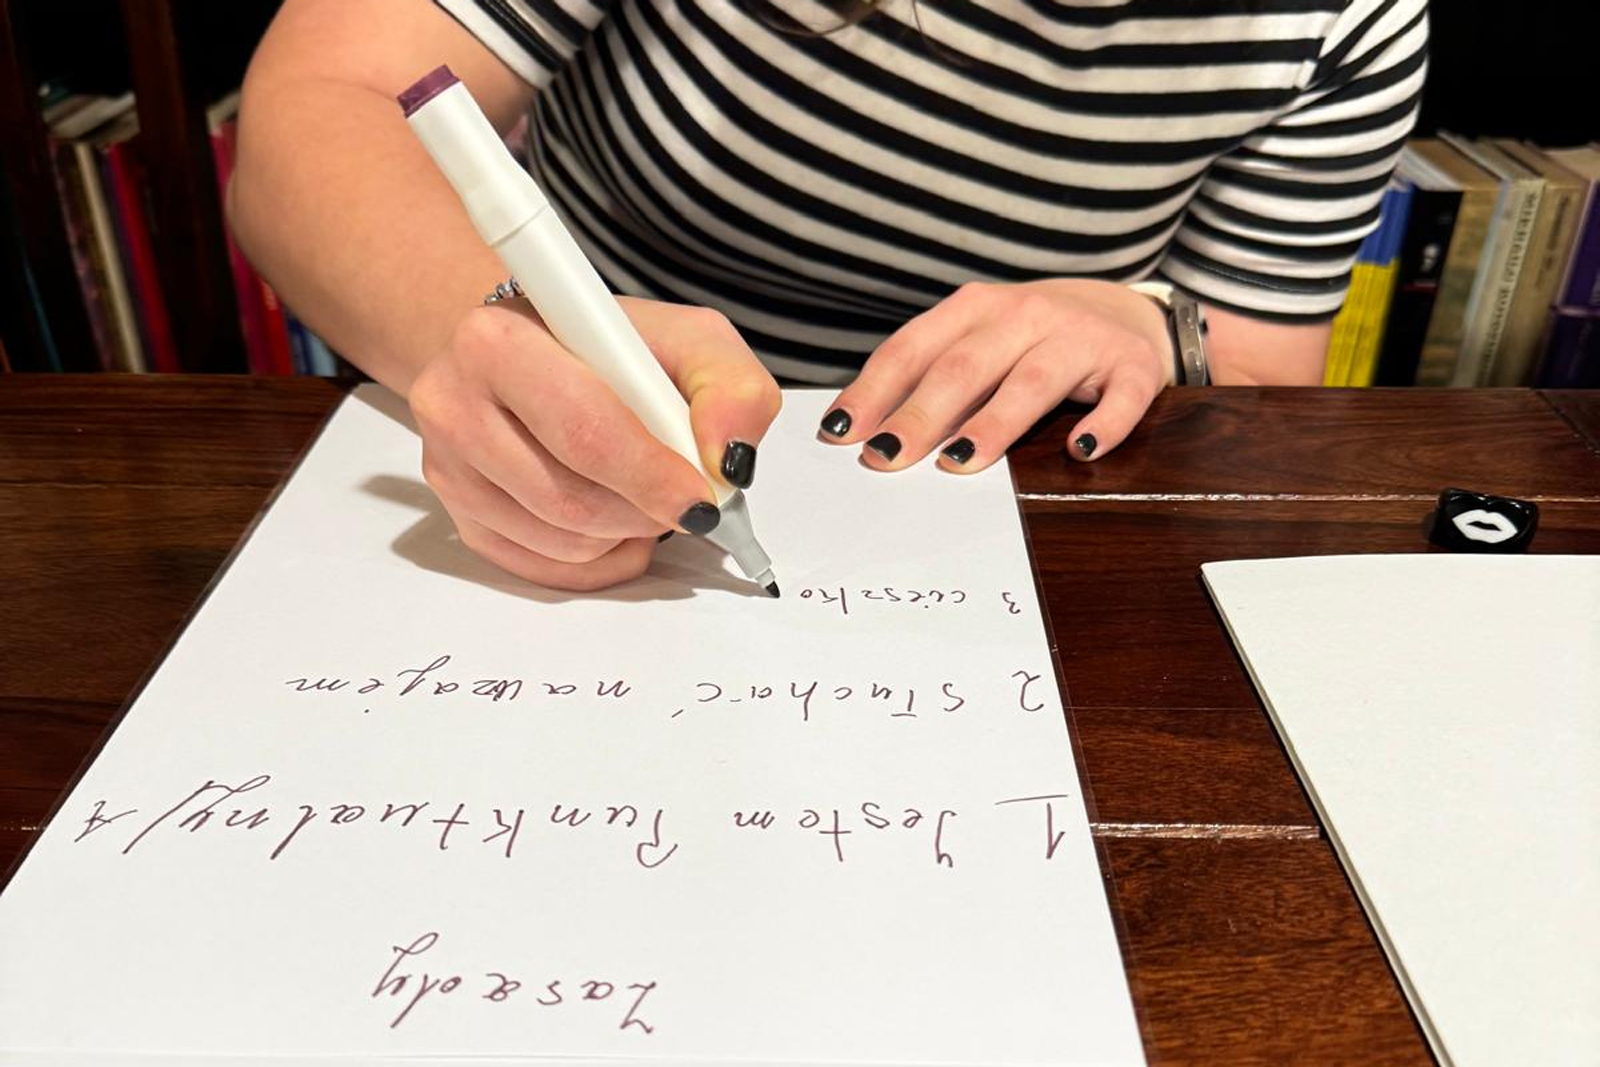 Zasady
1 Jestem Punktualny/A
2 Słuchać nawzajem
3 cieszko